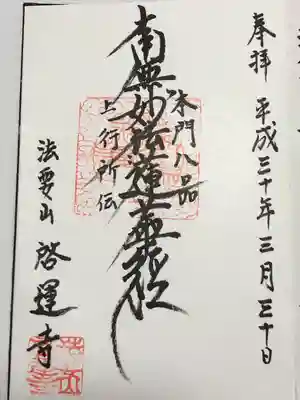 奉拝 平成三十年三月三十日
本門八品
南無妙法蓮華経
上行所伝
法要山 啓運寺